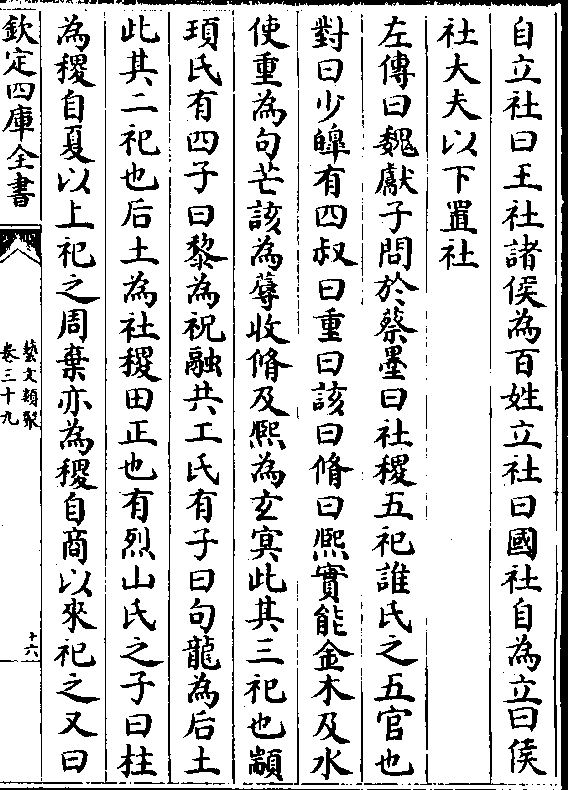 自立社曰王社諸侯為百姓立社曰國社自為立曰侯
社大夫以下置社
左傳曰魏獻子問於蔡墨曰社稷五祀誰氏之五官也
對曰少皥有四叔曰重曰該曰脩曰熈實能金木及水
使重為句芒該為蓐收脩及熈為玄冥此其三祀也顓
頊氏有四子曰黎為祝融共工氏有子曰句龍為后土
此其二祀也后土為社稷田正也有烈山氏之子曰柱
為稷自夏以上祀之周棄亦為稷自商以來祀之又曰
欽定四庫全書
藝文類聚
卷三十九
十六